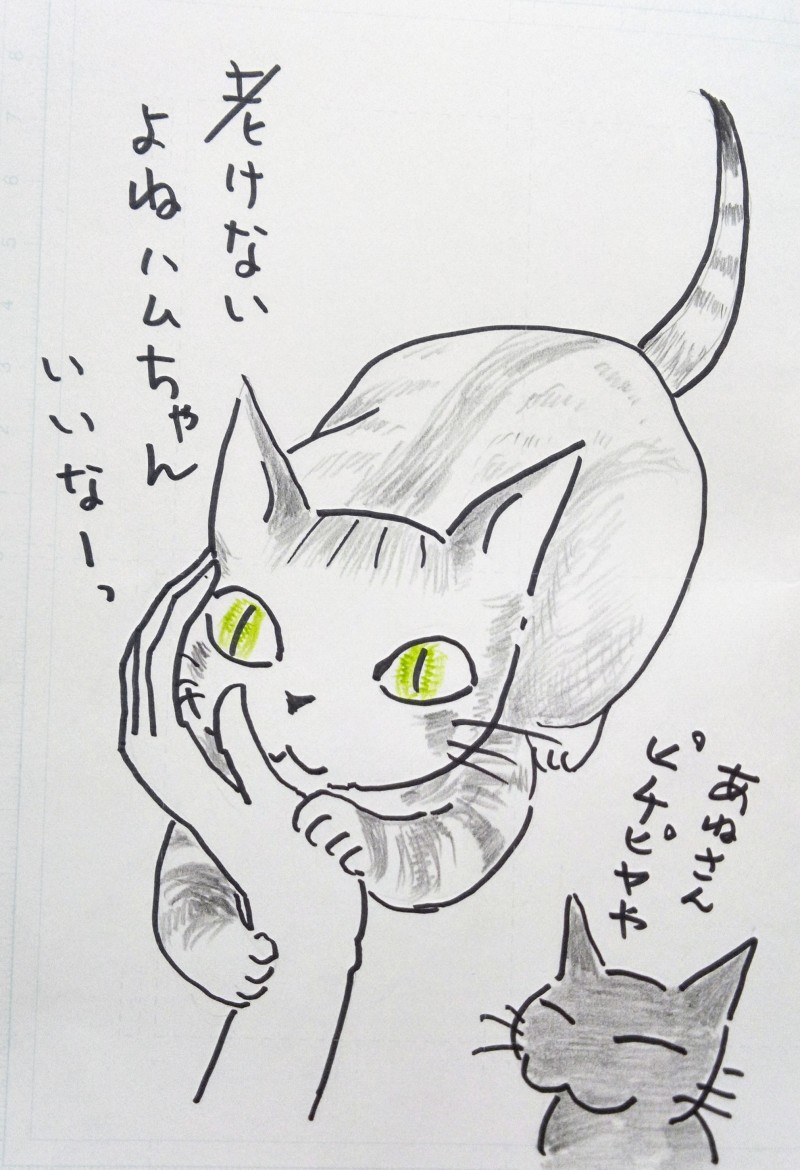 老けない
よねハムちゃん
いいなーっ
あねさん
ピチピチヤヤ